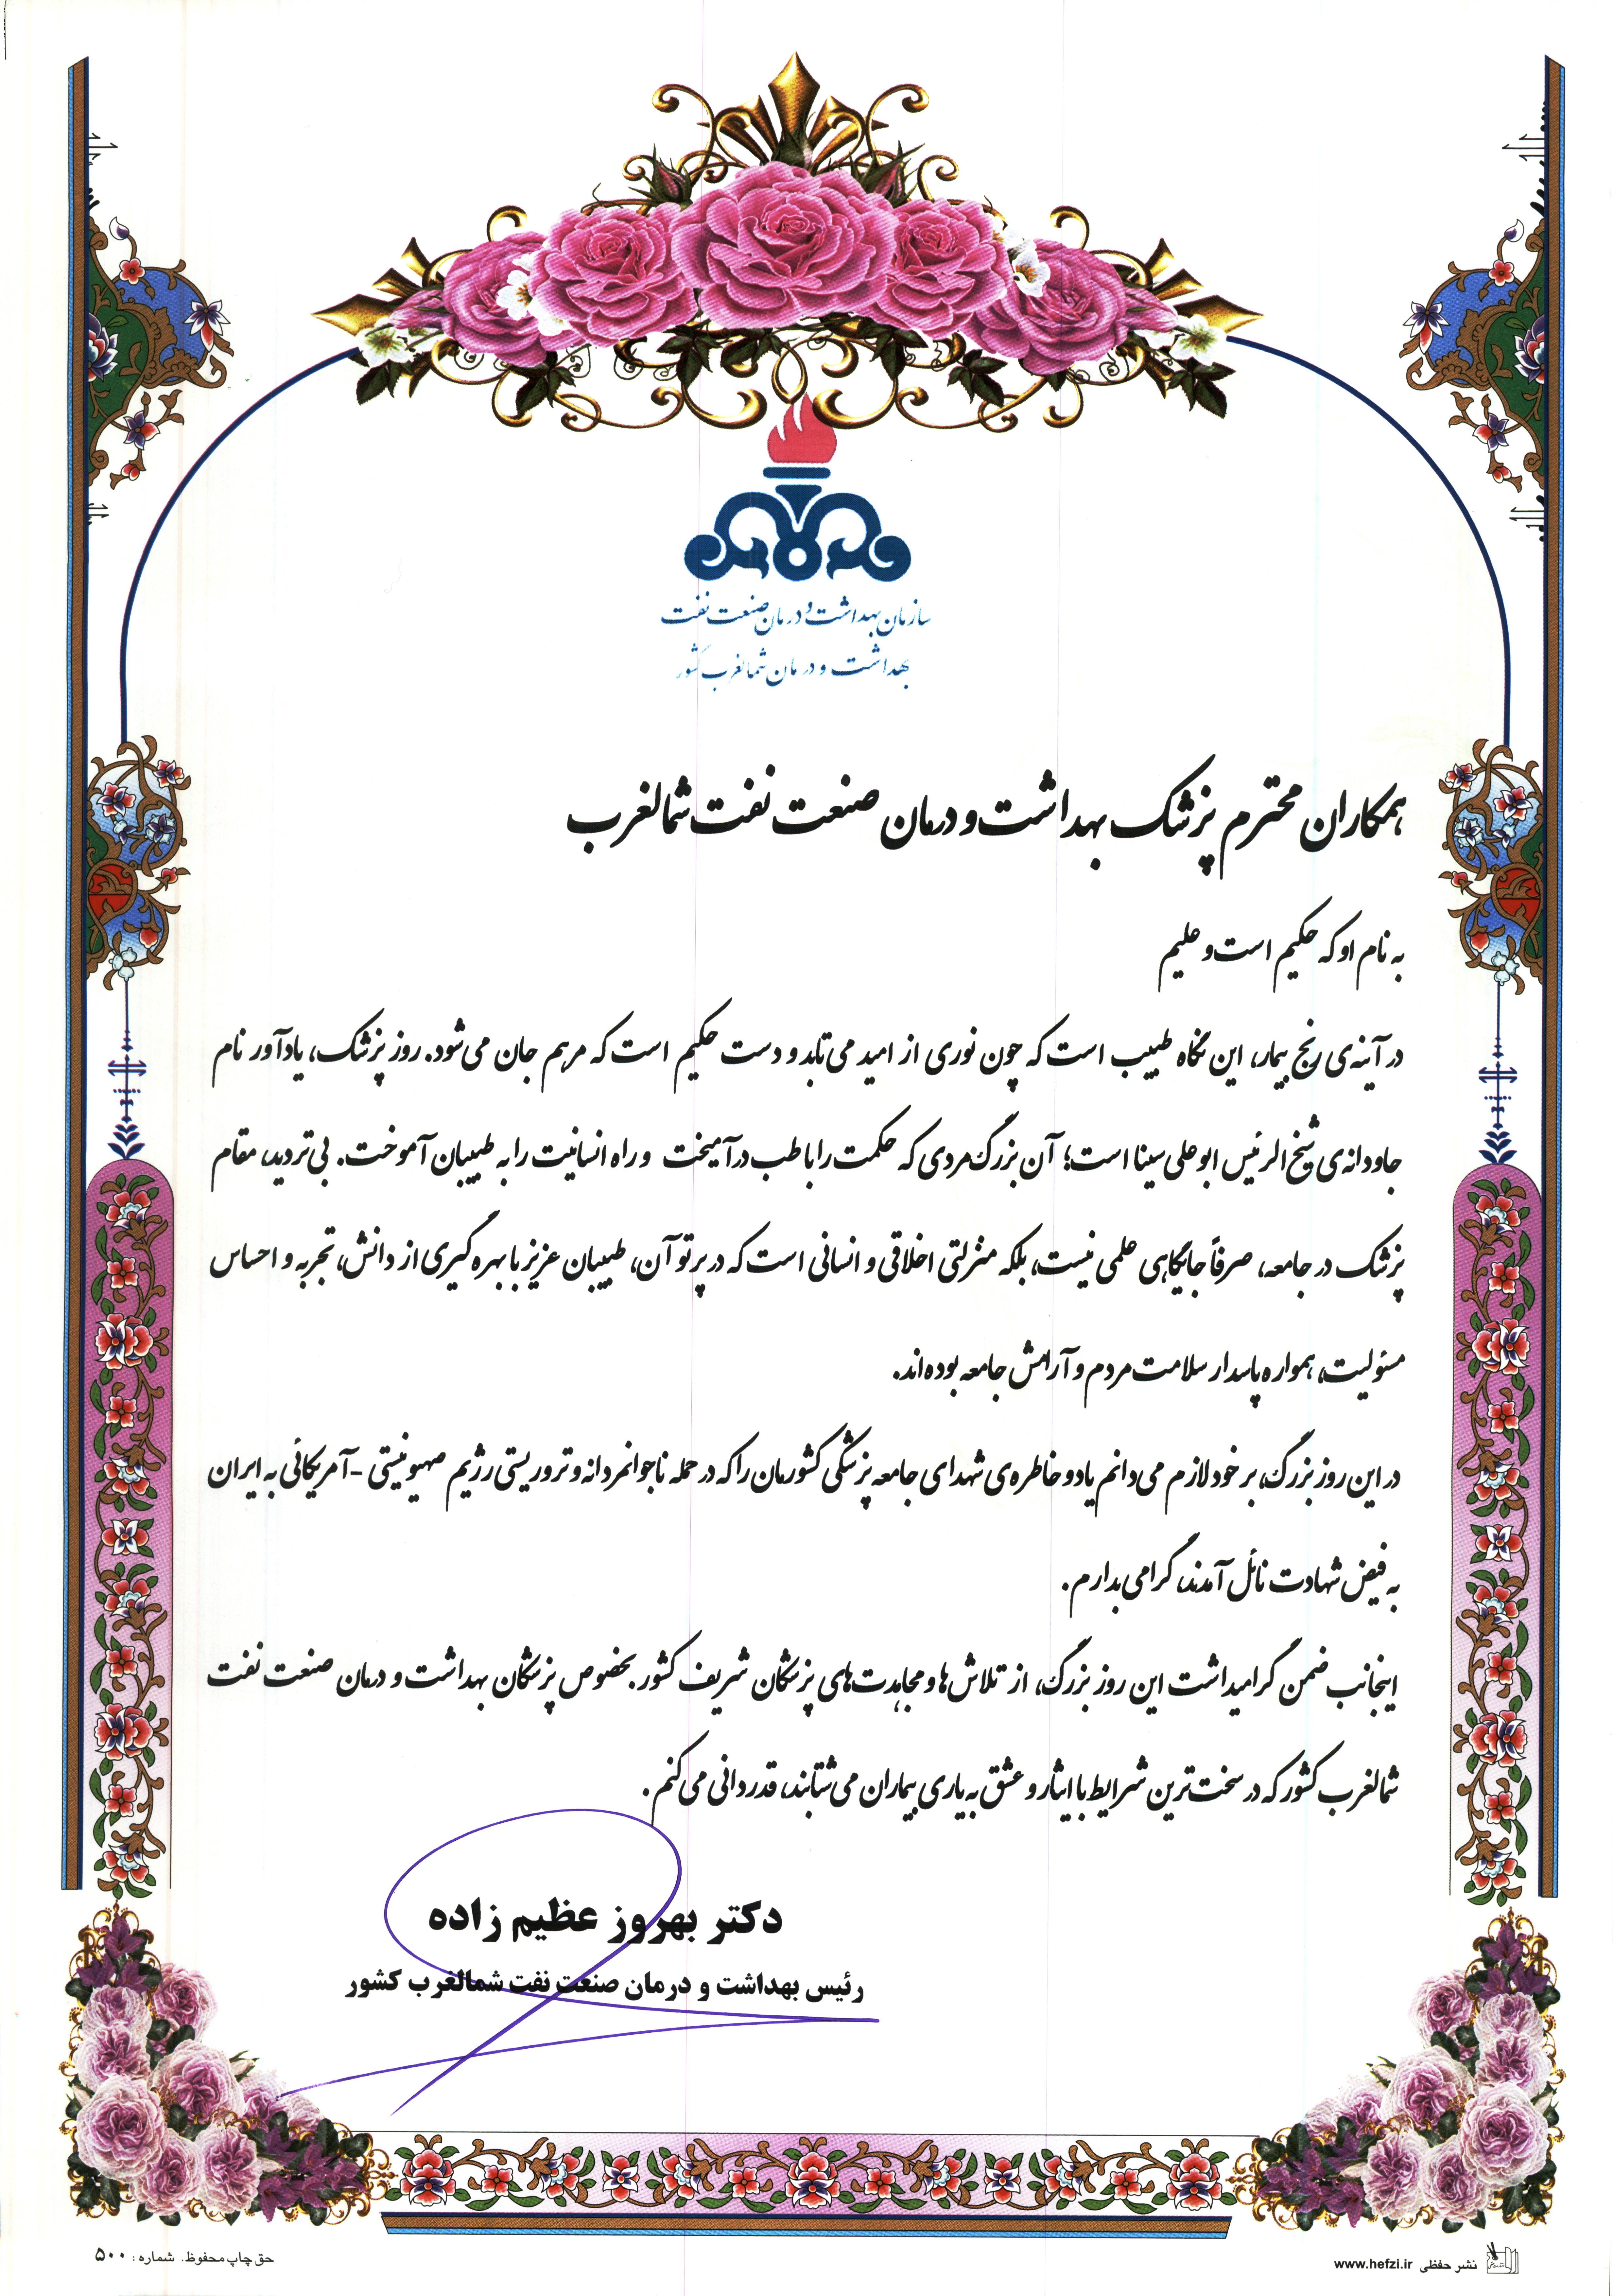 سازمان بهداشت و درمان صنعت نفت
بهداشت و درمان شمالغرب کشور
همکاران محترم پزشک بهداشت و درمان صنعت نفت شمالغرب
به نام او که حکیم است و علیم
در آینه‌ی رنج بیمار، این نگاه طبیب است که چون نوری از امید می‌تابد و دست حکیم است که مرهم جان می‌شود. روز پزشک، یادآور نام
جاودانه‌ی شیخ‌الرئیس ابوعلی سینا است؛ آن بزرگ‌مردی که حکمت را با طب درآمیخت و راه انسانیت را به طبیبان آموخت. بی‌تردید، مقام
پزشک در جامعه، صرفاً جایگاهی علمی نیست، بلکه منزلتی اخلاقی و انسانی است که در پرتو آن، طبیبان عزیز با بهره‌گیری از دانش، تجربه و احساس
مسئولیت، همواره پاسدار سلامت مردم و آرامش جامعه بوده‌اند.
در این روز بزرگ، بر خود لازم می‌دانم یاد و خاطره‌ی شهدای جامعه پزشکی کشورمان را که در حمله ناجوانمردانه و تروریستی رژیم صهیونیستی -آمریکائی به ایران
به فیض شهادت نائل آمدند، گرامی بدارم.
اینجانب ضمن گرامیداشت این روز بزرگ، از تلاش‌ها و مجاهدت‌های پزشکان شریف کشور. بخصوص پزشکان بهداشت و درمان صنعت نفت
شمالغرب کشور که در سخت‌ترین شرایط با ایثار و عشق به یاری بیماران می‌شتابند، قدردانی می‌کنم.
دکتر بهروز عظیم زاده
رئیس بهداشت و درمان صنعت نفت شمالغرب کشور
نشر حفظی www.hefzi.ir
حق چاپ محفوظ. شماره: ۵۰۰